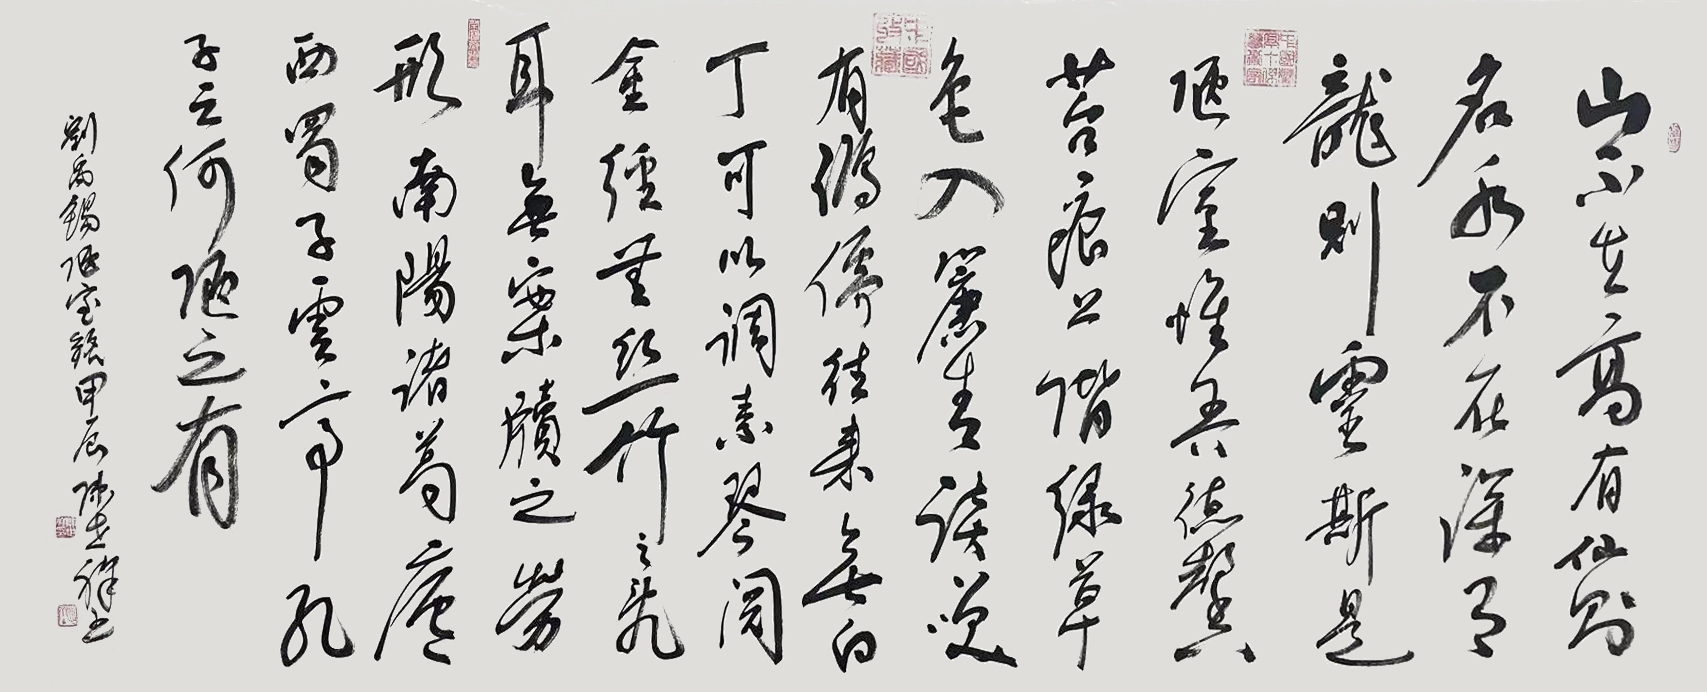 山不在高有仙則
名水不在深有
龍則靈斯是
陋室惟吾德馨
苔痕上階綠草
色入簾青談笑
有鴻儒往來無白
丁可以調素琴閱
金經無絲竹之亂
耳無案牘之勞
形南陽諸葛廬
西蜀子雲亭孔
子云何陋之有
劉禹錫陋室銘甲辰陳志祥書